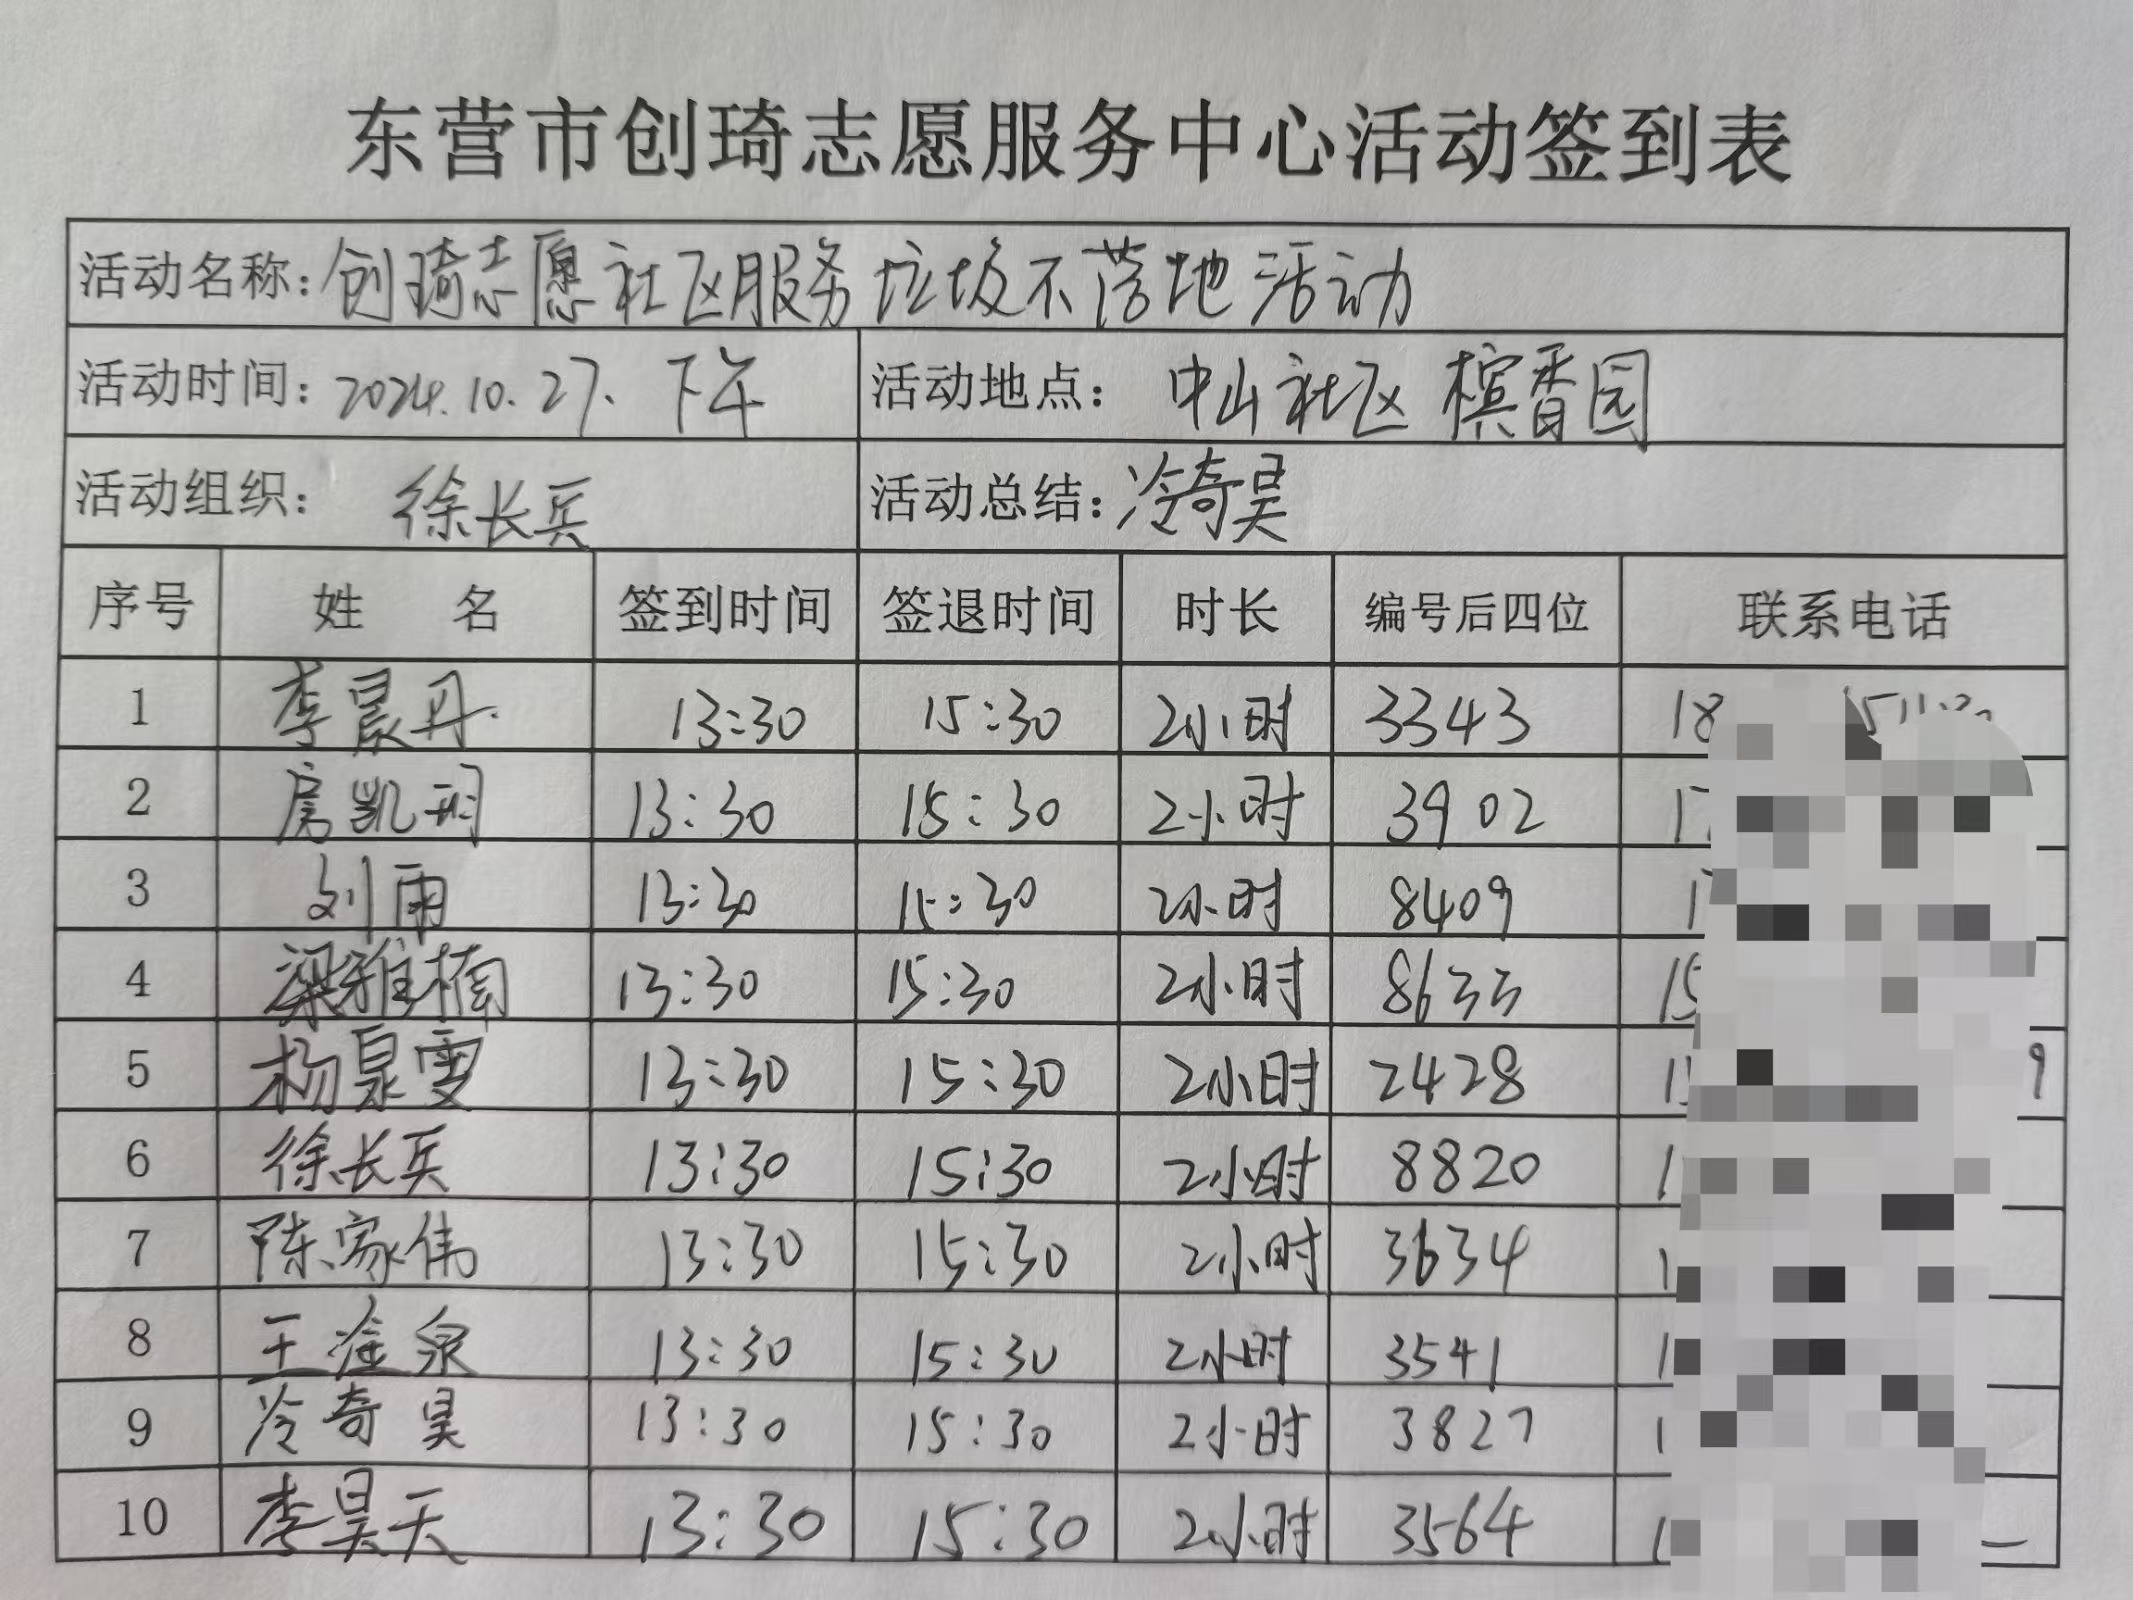 东营市创琦志愿服务中心活动签到表
活动名称：创琦志愿社区服务 垃圾不落地活动
活动时间：2024.10.27. 下午 活动地点： 中山社区 槟香园
活动组织： 徐长兵 活动总结：冷奇昊
序号 姓 名 签到时间 签退时间 时长 编号后四位 联系电话
1 李晨丹 13:30 15:30 2小时 3343 18
2 房凯 13:30 15:30 2小时 3902 17
3 刘雨 13:30 15:30 2小时 8409 1
4 梁雅楠 13:30 15:30 2小时 8633 15
5 杨泉雯 13:30 15:30 2小时 2428 1 9
6 徐长兵 13:30 15:30 2小时 8820 1
7 陈家伟 13:30 15:30 2小时 3634 1
8 王淦泉 13:30 15:30 2小时 3541 1
9 冷奇昊 13:30 15:30 2小时 3827 1
10 李昊天 13:30 15:30 2小时 3564 1